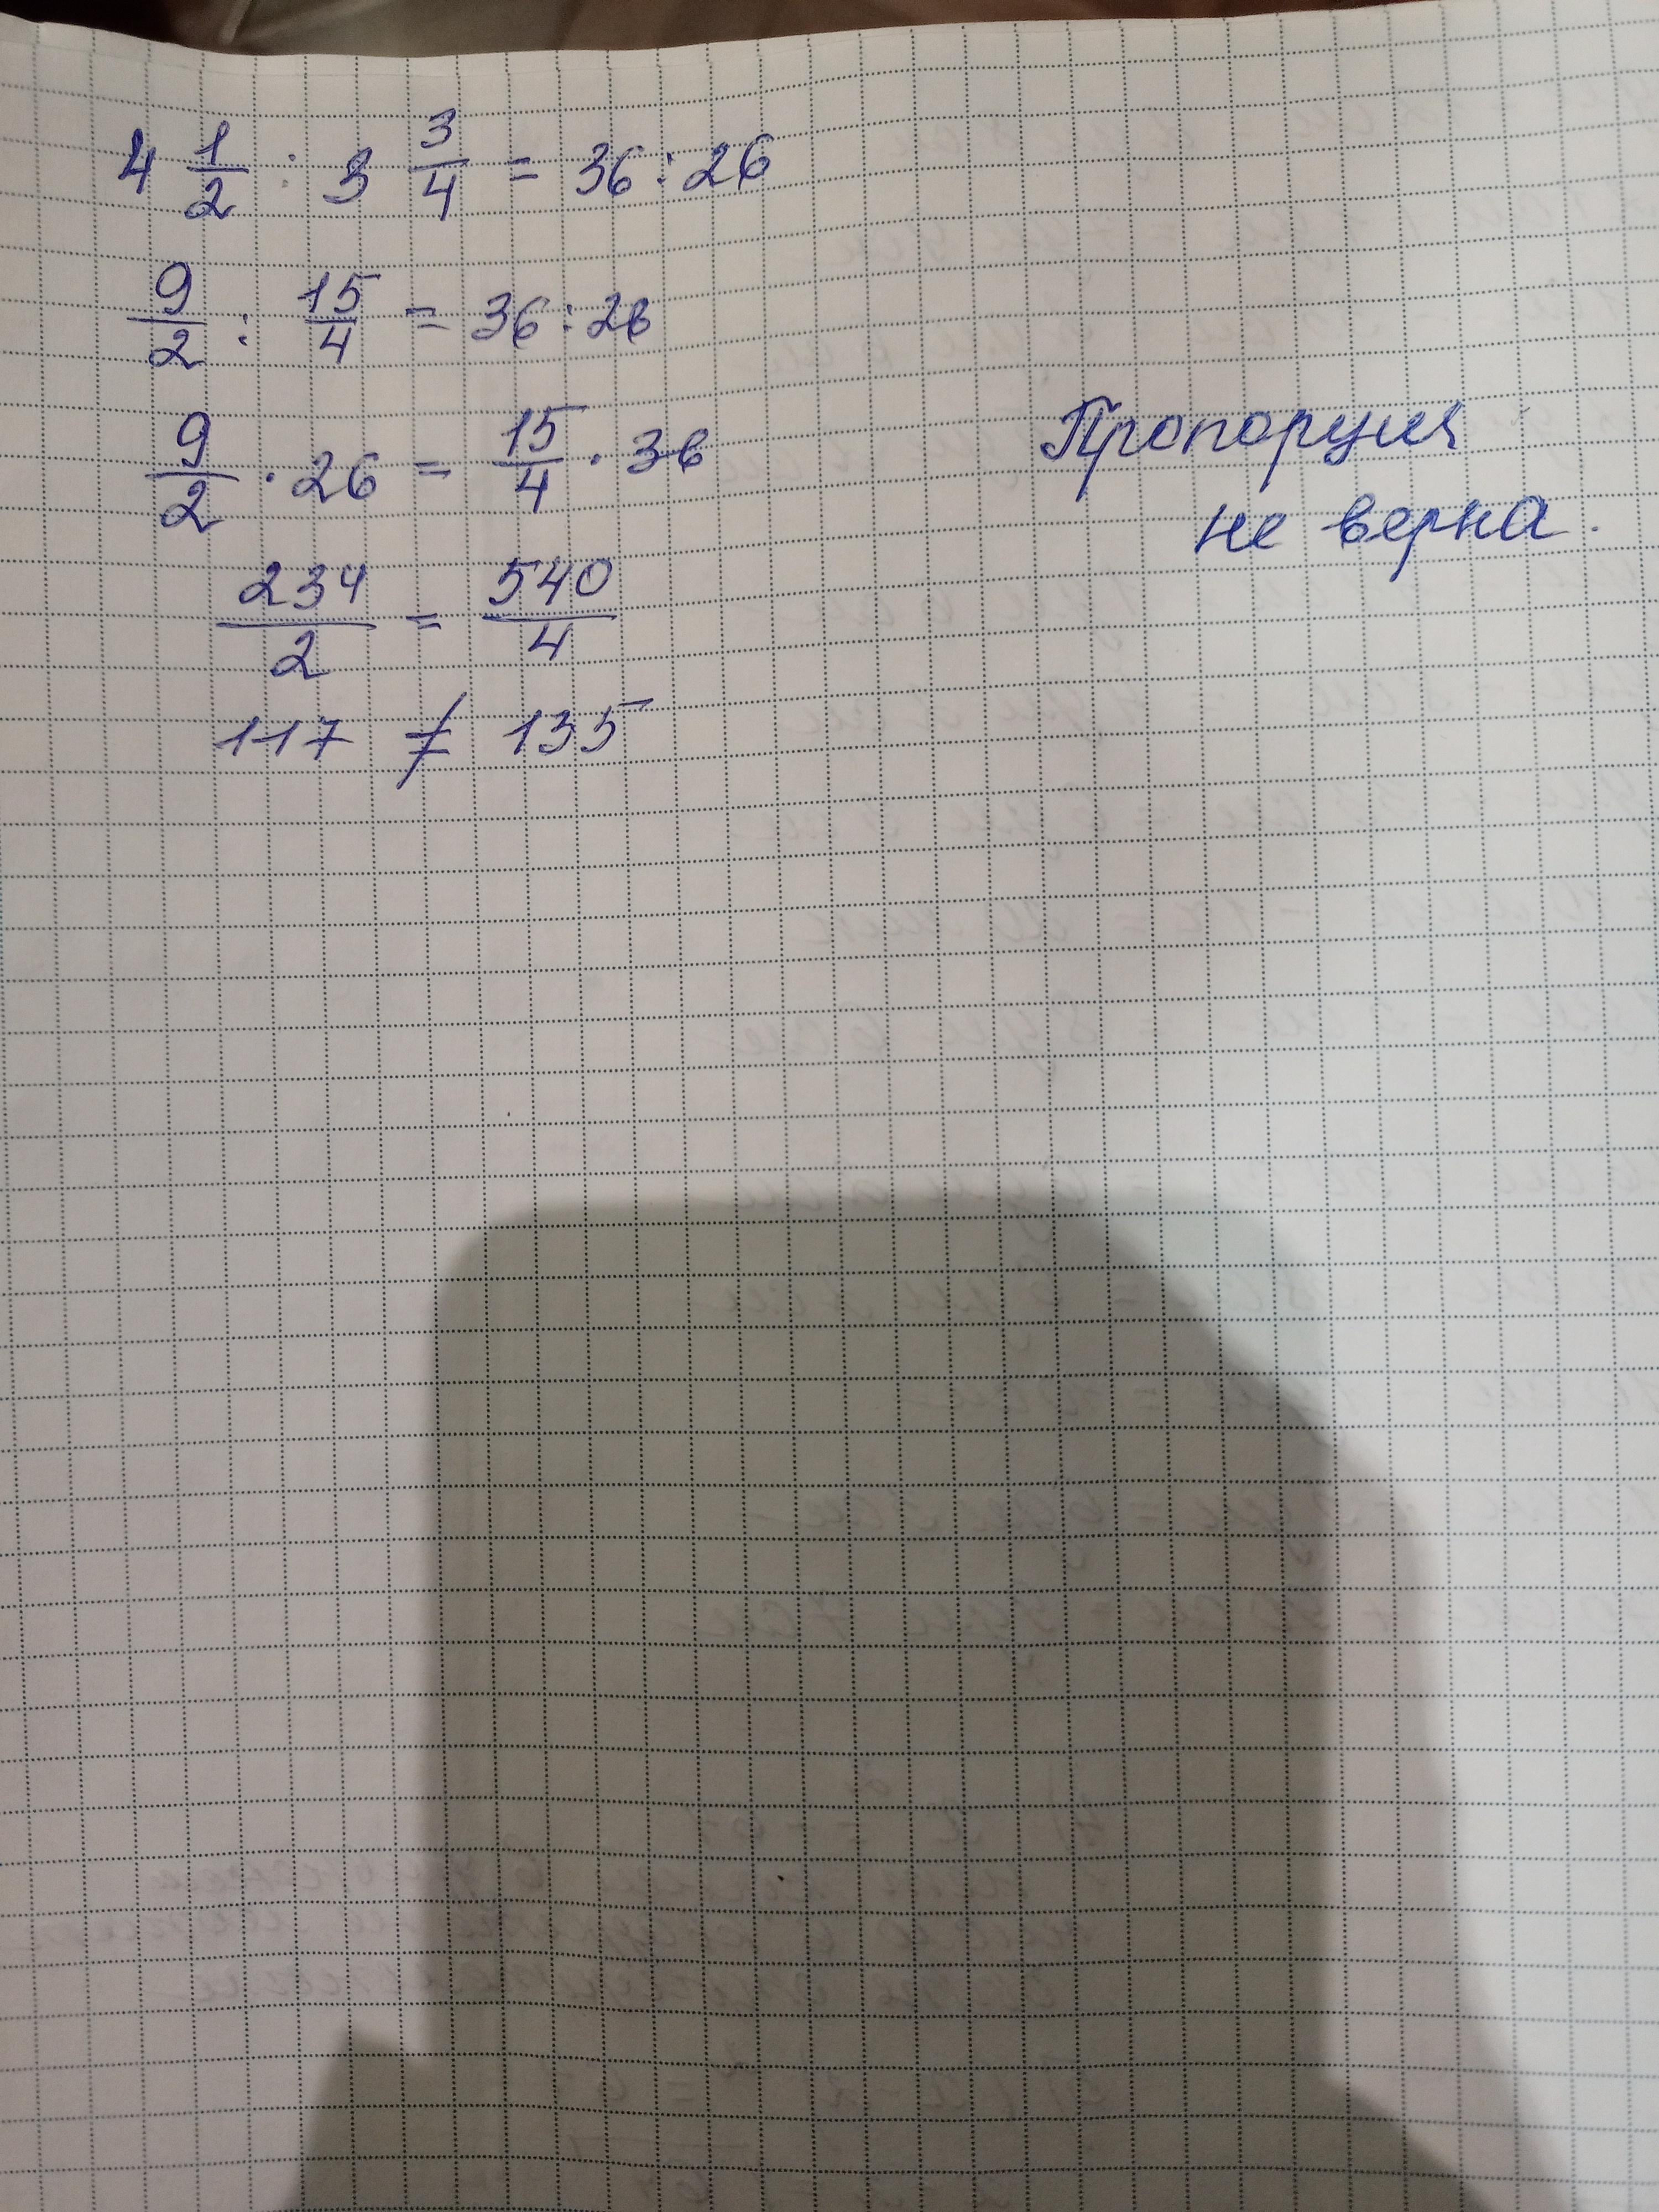 4 1/2 : 3 3/4 = 36 : 26
9/2 : 15/4 = 36 : 26
9/2 · 26 = 15/4 · 36
234/2 = 540/4
117 ≠ 135
Пропорция
не верна.